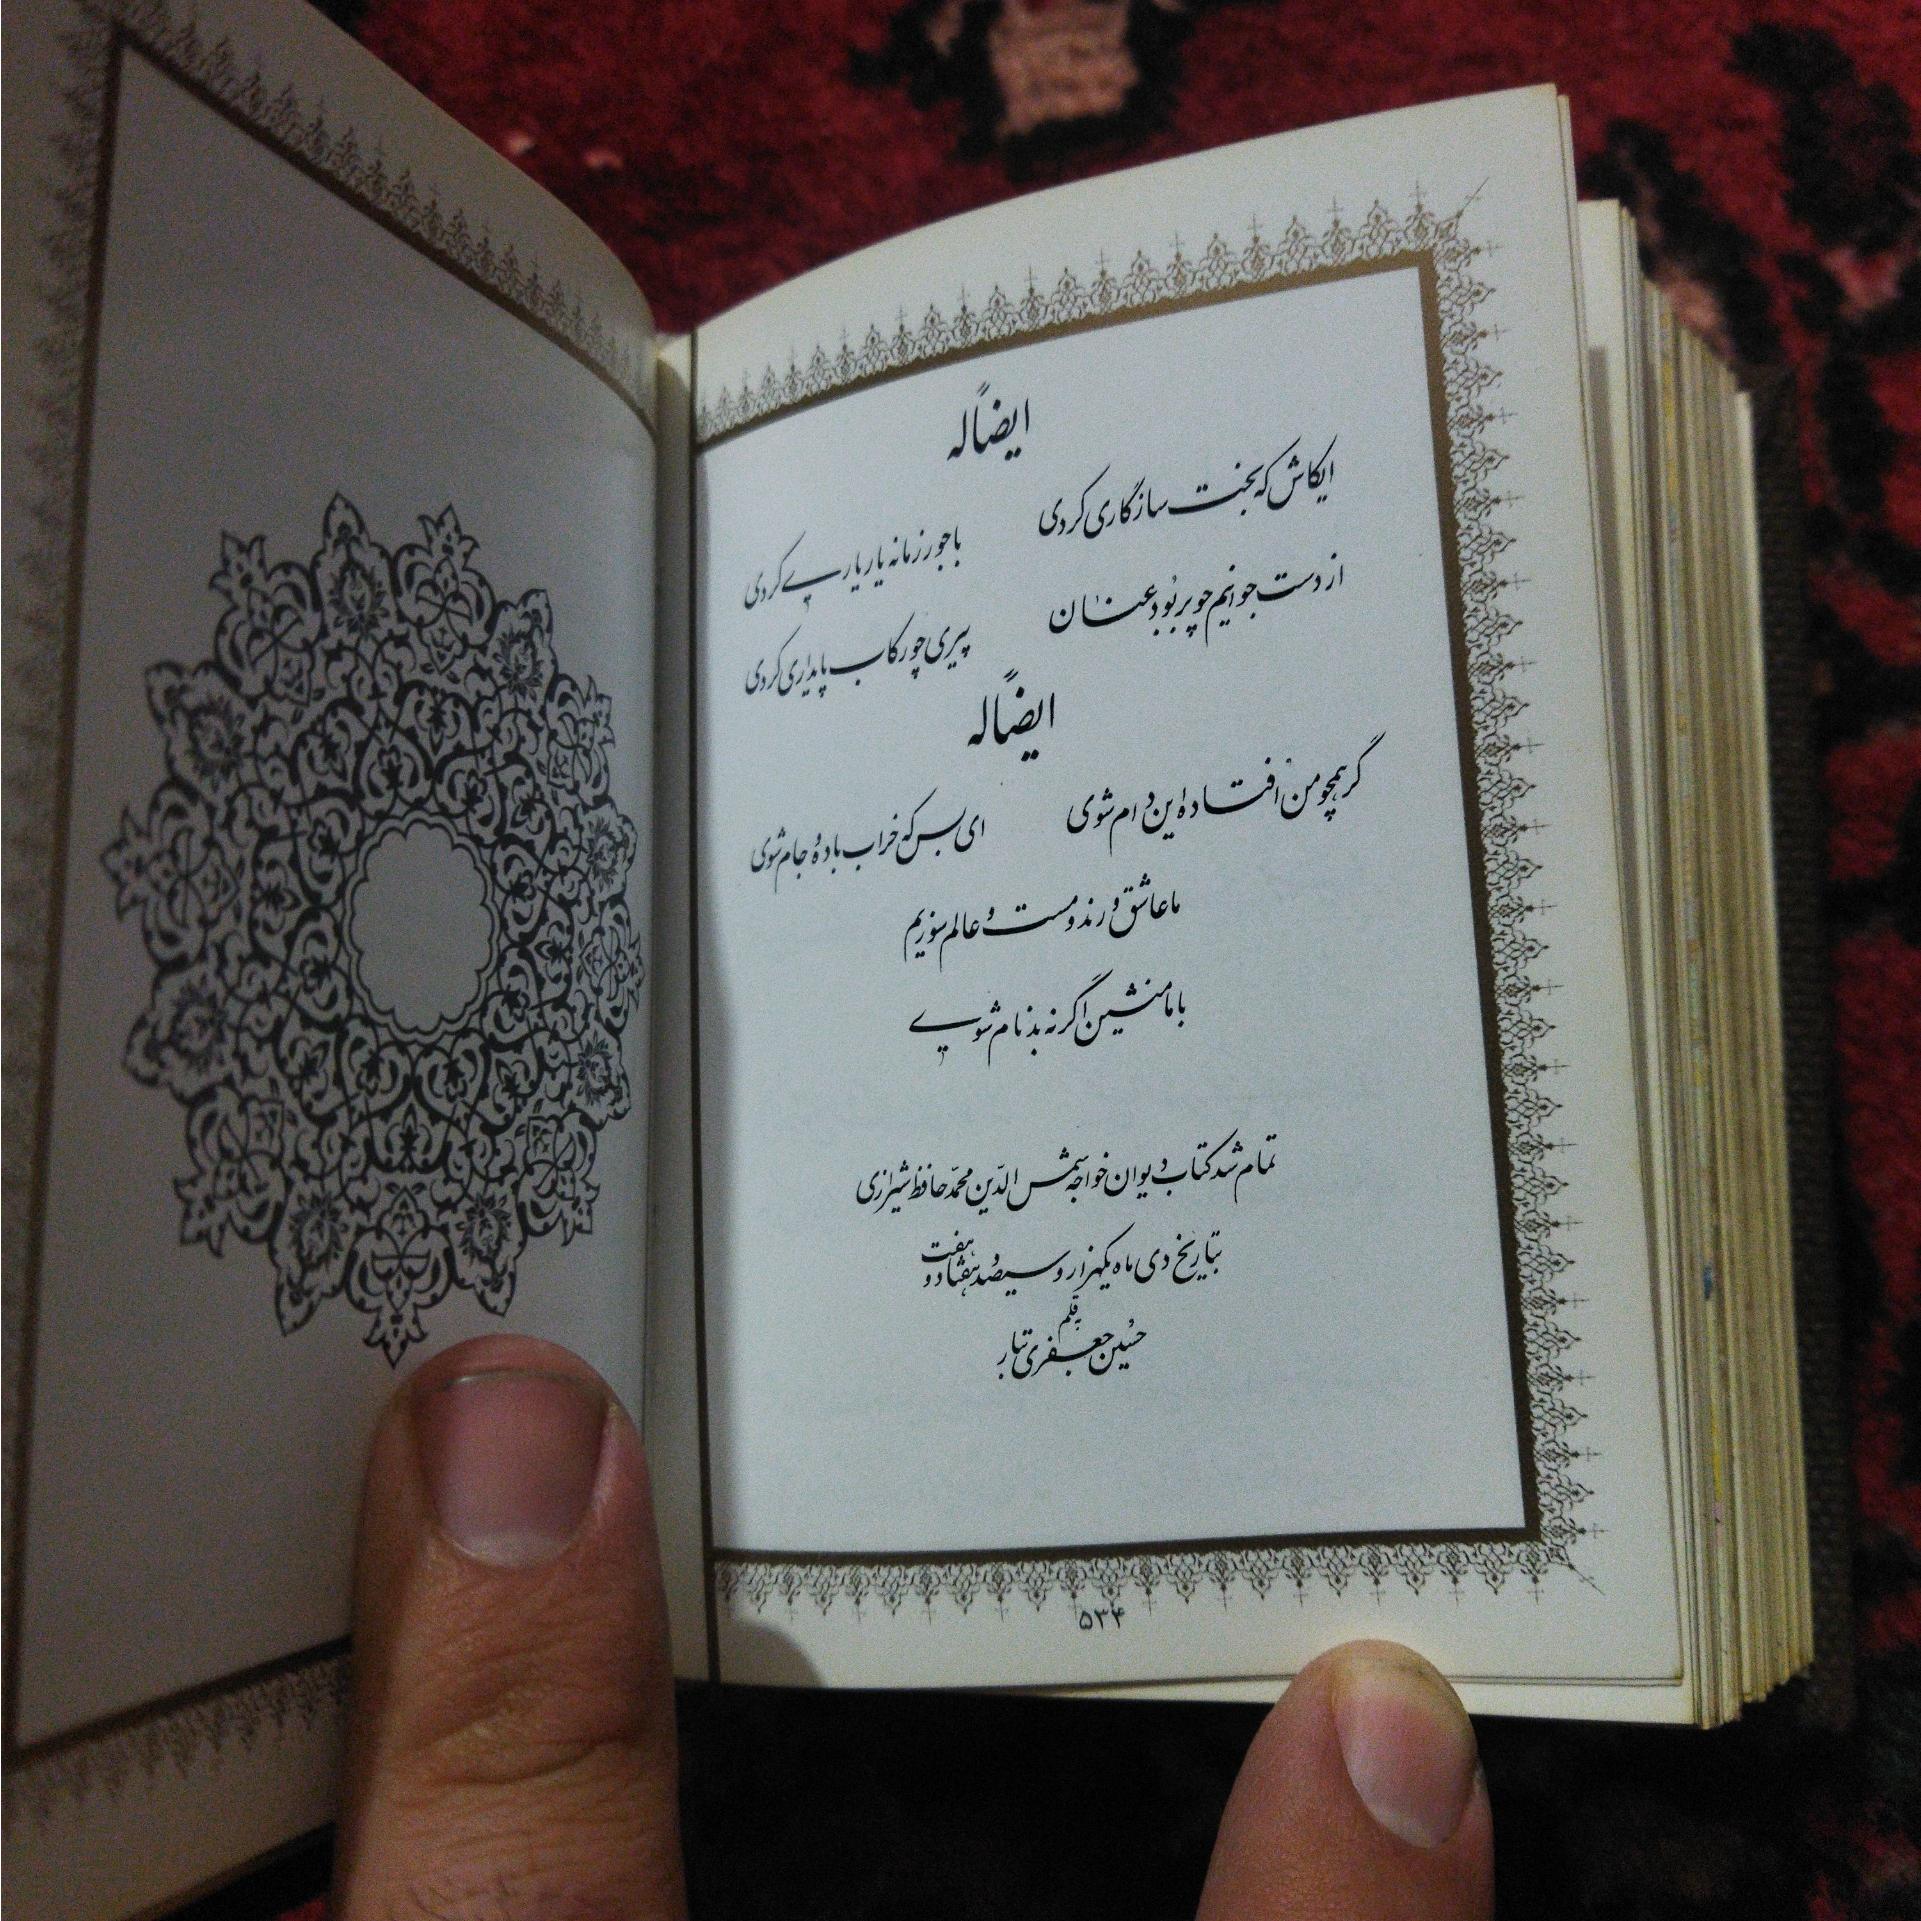 ایضاً له
ایکاش که بخت سازگاری کردی
با جور زمانه یار یاری کردی
از دست جوانیم چو بربود عنان
پیری چو رکاب پایداری کردی
ایضاً له
گر همچو من افتاده این دام شوی
ای بس که خراب باده و جام شوی
ما عاشق و رند و مست و عالم سوزیم
با ما منشین اگر نه بدنام شوی
تمام شد کتاب دیوان خواجه شمس الدّین محمّد حافظ شیرازی
بتاریخ دی ماه یکهزار و سیصد و هفتاد و هفت
به قلم
حسین جعفری تبار
۵۳۴